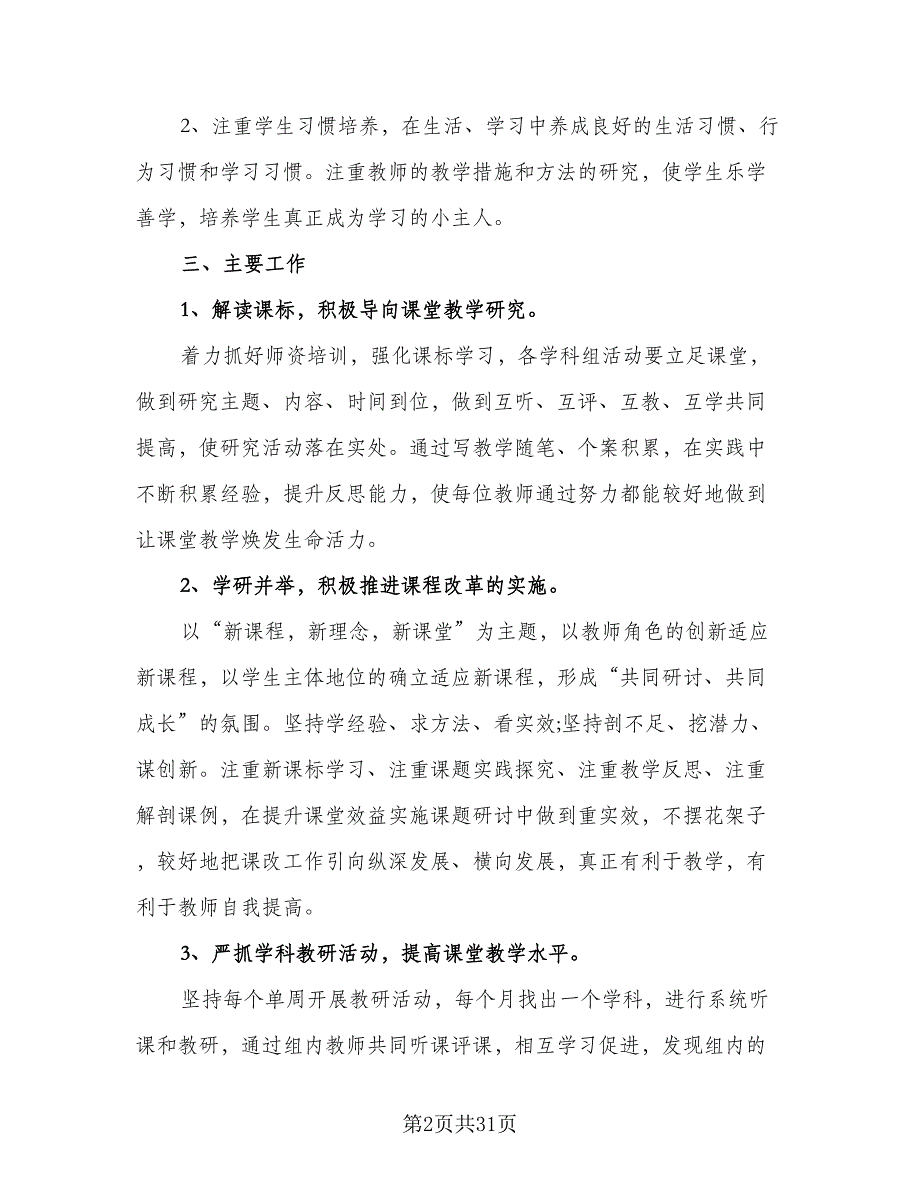 2、注重学生习惯培养，在生活、学习中养成良好的生活习惯、行
为习惯和学习习惯。注重教师的教学措施和方法的研究，使学生乐学
善学，培养学生真正成为学习的小主人。
三、主要工作
1、解读课标，积极导向课堂教学研究。
着力抓好师资培训，强化课标学习，各学科组活动要立足课堂，
做到研究主题、内容、时间到位，做到互听、互评、互教、互学共同
提高，使研究活动落在实处。通过写教学随笔、个案积累，在实践中
不断积累经验，提升反思能力，使每位教师通过努力都能较好地做到
让课堂教学焕发生命活力。
2、学研并举，积极推进课程改革的实施。
以“新课程，新理念，新课堂”为主题，以教师角色的创新适应
新课程，以学生主体地位的确立适应新课程，形成“共同研讨、共同
成长”的氛围。坚持学经验、求方法、看实效;坚持剖不足、挖潜力、
谋创新。注重新课标学习、注重课题实践探究、注重教学反思、注重
解剖课例，在提升课堂效益实施课题研讨中做到重实效，不摆花架子
，较好地把课改工作引向纵深发展、横向发展，真正有利于教学，有
利于教师自我提高。
3、严抓学科教研活动，提高课堂教学水平。
坚持每个单周开展教研活动，每个月找出一个学科，进行系统听
课和教研，通过组内教师共同听课评课，相互学习促进，发现组内的
第2页共31页